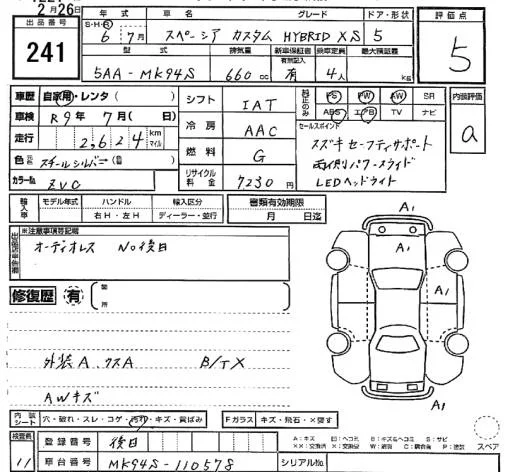 2月26日
出品番号 241
年式 S・H・R 6年 7月
車名 スペーシア カスタム
グレード HYBRID XS
ドア・形状 5
評価点 5
型式 5AA-MK94S
排気量 660cc
新車保証書 有無記入 有
乗車定員 4人
最大積載量 kg
車歴 自家用・レンタ( )
車検 R9年7月( 日)
走行 2,624 km マイル
色 スチールシルバー
カラーNo. ZVC
シフト IAT
冷房 AAC
燃料 G
リサイクル料金 7230円
純正のみ PS PW AW SR
ABS エアB TV ナビ
セールスポイント
スズキ セーフティサポート
両側パワースライド
LEDヘッドライト
内装評価 a
輸入車 モデル年式 ハンドル 右H・左H 輸入区分 ディーラー・並行
書類有効期限 月 日迄
※注意事項等記載
オーディオレス No後日
修復歴 有 箇所
外装A クスA B/TX
AWキズ
A1
A1
A1
A1
内装シート 穴・破れ・スレ・コゲ・汚れ・キズ・黄ばみ
Fガラス キズ・飛石・×要す
検査員 11
登録番号 後日
車台番号 MK94S-110578
シリアルNo.
スペア